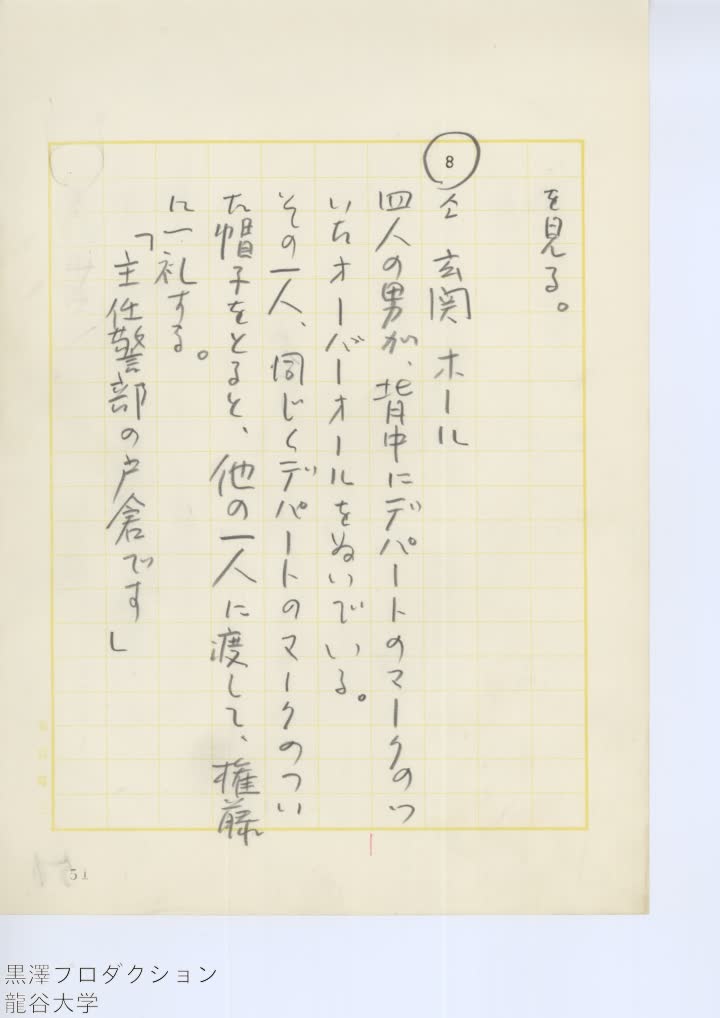 を見る。
8
仝 玄関 ホール
四人の男が、背中にデパートのマークのつ
いたオーバーオールをぬいでいる。
その一人、同じくデパートのマークのつい
た帽子をとると、他の一人に渡して、権藤
に一礼する。
「主任警部の戸倉です」
51
黒澤プロダクション
龍谷大学